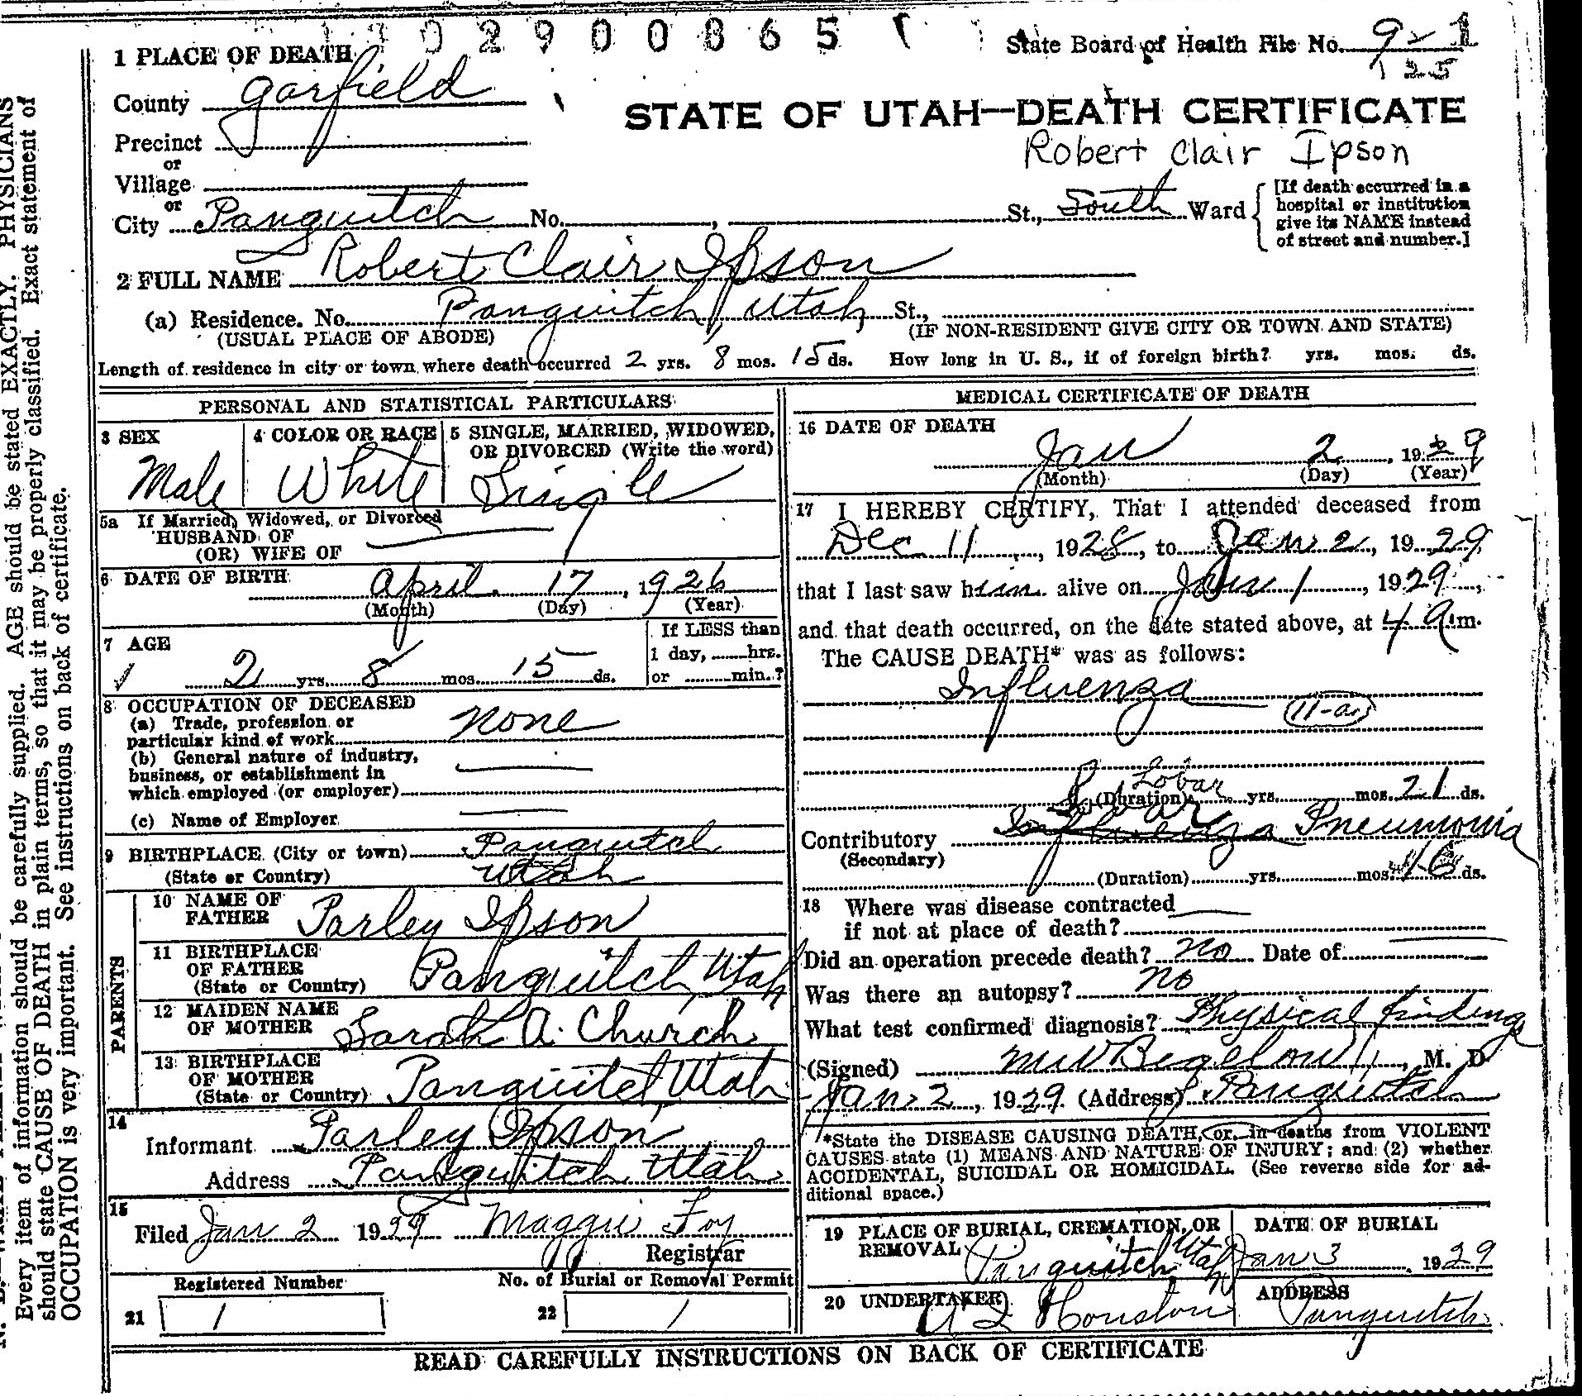 1 3 0 2 9 0 0 8 6 5
State Board of Health File No. 9-1
125
1 PLACE OF DEATH
County Garfield
STATE OF UTAH—DEATH CERTIFICATE
Precinct
Robert Clair Ipson
or
Village
or
City Panguitch No. , St., South Ward
[If death occurred in a
hospital or institution
give its NAME instead
of street and number.]
2 FULL NAME Robert Clair Ipson
(a) Residence. No. Panguitch, Utah St.,
(USUAL PLACE OF ABODE) (IF NON-RESIDENT GIVE CITY OR TOWN AND STATE)
Length of residence in city or town where death occurred 2 yrs. 8 mos. 15 ds. How long in U. S., if of foreign birth? yrs. mos. ds.
PERSONAL AND STATISTICAL PARTICULARS
3 SEX
Male
4 COLOR OR RACE
White
5 SINGLE, MARRIED, WIDOWED,
OR DIVORCED (Write the word)
Single
5a If Married, Widowed, or Divorced
HUSBAND OF
(OR) WIFE OF
6 DATE OF BIRTH April 17, 1926
(Month) (Day) (Year)
7 AGE
2 yrs. 8 mos. 15 ds.
If LESS than
1 day, hrs.
or min.?
8 OCCUPATION OF DECEASED
(a) Trade, profession or
particular kind of work none
(b) General nature of industry,
business, or establishment in
which employed (or employer)
(c) Name of Employer
9 BIRTHPLACE (City or town) Panguitch
(State or Country) Utah
PARENTS
10 NAME OF
FATHER Parley Ipson
11 BIRTHPLACE
OF FATHER
(State or Country) Panguitch Utah
12 MAIDEN NAME
OF MOTHER Sarah A. Church
13 BIRTHPLACE
OF MOTHER
(State or Country) Panguitch Utah
14
Informant Parley Ipson
Address Panguitch, Utah
15
Filed Jan 2 1929 Maggie Foy
Registrar
Registered Number
21 1
No. of Burial or Removal Permit
22 1
MEDICAL CERTIFICATE OF DEATH
16 DATE OF DEATH
Jan 2, 1929
(Month) (Day) (Year)
17 I HEREBY CERTIFY, That I attended deceased from
Dec 11, 1928, to Jan 2, 1929,
that I last saw him alive on Jan 1, 1929,
and that death occurred, on the date stated above, at 4 a.m.
The CAUSE DEATH* was as follows:
Influenza
11-a
Lobar
(Duration) yrs. mos. 21 ds.
Contributory Influenza Pneumonia
(Secondary)
(Duration) yrs. mos. 16 ds.
18 Where was disease contracted
if not at place of death?
Did an operation precede death? No Date of
Was there an autopsy? no
What test confirmed diagnosis? Physical findings
(Signed) M W Bigelow, M. D
Jan. 2, 1929. (Address) Panguitch
*State the DISEASE CAUSING DEATH, or, in deaths from VIOLENT
CAUSES state (1) MEANS AND NATURE OF INJURY; and (2) whether
ACCIDENTAL, SUICIDAL OR HOMICIDAL. (See reverse side for ad-
ditional space.)
19 PLACE OF BURIAL, CREMATION, OR
REMOVAL Panguitch Utah
DATE OF BURIAL
Jan 3 1929
20 UNDERTAKER Houston
ADDRESS
Panguitch
READ CAREFULLY INSTRUCTIONS ON BACK OF CERTIFICATE
Every item of information should be carefully supplied. AGE should be stated EXACTLY. PHYSICIANS
should state CAUSE OF DEATH in plain terms, so that it may be properly classified. Exact statement of
OCCUPATION is very important. See instructions on back of certificate.